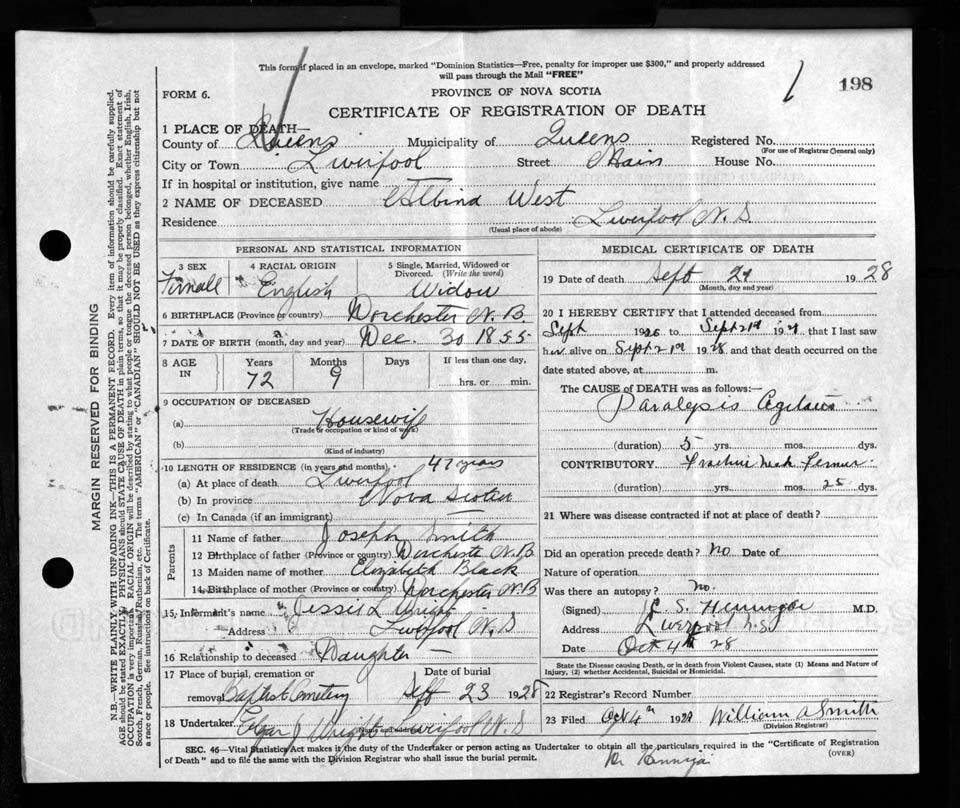 This form if placed in an envelope, marked "Dominion Statistics—Free, penalty for improper use $300," and properly addressed
will pass through the Mail "FREE"
198
FORM 6.
PROVINCE OF NOVA SCOTIA
CERTIFICATE OF REGISTRATION OF DEATH
1 PLACE OF DEATH—
County of Queens Municipality of Queens Registered No.
(For use of Registrar General only)
City or Town Liverpool Street Main House No.
If in hospital or institution, give name
2 NAME OF DECEASED Albina West
Residence Liverpool N.S
(Usual place of abode)
PERSONAL AND STATISTICAL INFORMATION
3 SEX 4 RACIAL ORIGIN 5 Single, Married, Widowed or Divorced. (Write the word)
English Widow
6 BIRTHPLACE (Province or country) Dorchester N.B
7 DATE OF BIRTH (month, day and year) Dec. 30 1855
8 AGE IN Years Months Days If less than one day,
72 9 hrs. or min.
9 OCCUPATION OF DECEASED
(a) Housewif
(Trade or occupation or kind of work)
(b)
(Kind of industry)
10 LENGTH OF RESIDENCE (in years and months) 47 years
(a) At place of death Liverpool
(b) In province Nova Scotia
(c) In Canada (if an immigrant)
Parents
11 Name of father Joseph Smith
12 Birthplace of father (Province or country) Dorchester N.B
13 Maiden name of mother Elizabeth Black
14 Birthplace of mother (Province or country) Dorchester N.B
15 Informant's name Jessie L Wright
Address Liverpool N.S
16 Relationship to deceased Daughter
17 Place of burial, cremation or removal Baptist Cemetery Date of burial Sept 23 1928
18 Undertaker Edgar J Wright Liverpool N.S
Name and address
MEDICAL CERTIFICATE OF DEATH
19 Date of death Sept 21 1928
(Month, day and year)
20 I HEREBY CERTIFY that I attended deceased from
Sept 1926 to Sept 21st 19 that I last saw
her alive on Sept 21st 1928 and that death occurred on the
date stated above, at m.
The CAUSE OF DEATH was as follows:
Paralysis Agitans
(duration) 5 yrs. mos. dys.
CONTRIBUTORY Fracture neck Femur
(duration) yrs. mos. 25 dys.
21 Where was disease contracted if not at place of death?
Did an operation precede death? No Date of
Nature of operation
Was there an autopsy? No.
(Signed) S. Hennigar M.D.
Address Liverpool N.S.
Date Oct 4th 28
State the Disease causing Death, or in death from Violent Causes, state (1) Means and Nature of
Injury, (2) whether Accidental, Suicidal or Homicidal.
22 Registrar's Record Number
23 Filed Oct 4th 1928 William Smith
(Division Registrar)
SEC. 46—Vital Statistics Act makes it the duty of the Undertaker or person acting as Undertaker to obtain all the particulars required in the "Certificate of Registration
of Death" and to file the same with the Division Registrar who shall issue the burial permit.
(OVER)
MARGIN RESERVED FOR BINDING
N.B.—WRITE PLAINLY WITH UNFADING INK—THIS IS A PERMANENT RECORD. Every item of information should be carefully supplied.
AGE should be stated EXACTLY. PHYSICIANS should STATE CAUSE OF DEATH in plain terms, so that it may be properly classified. Exact statement of
OCCUPATION is very important. RACIAL ORIGIN will be described by stating to what people or tongue the deceased person belonged, whether English, Irish,
Scotch, French, German, Russian, Ruthenian, etc. The terms "AMERICAN" or "CANADIAN" SHOULD NOT BE USED as they express citizenship but not
a race or people. See instructions on back of Certificate.